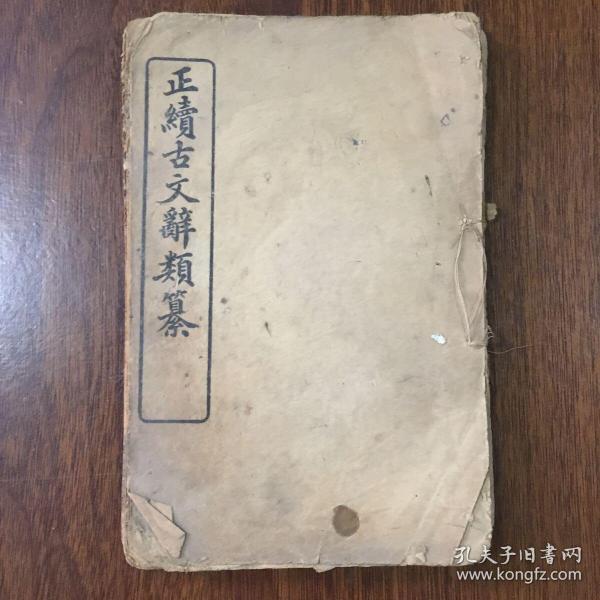 正續古文辭類纂
孔夫子旧書网
www.kongfz.com